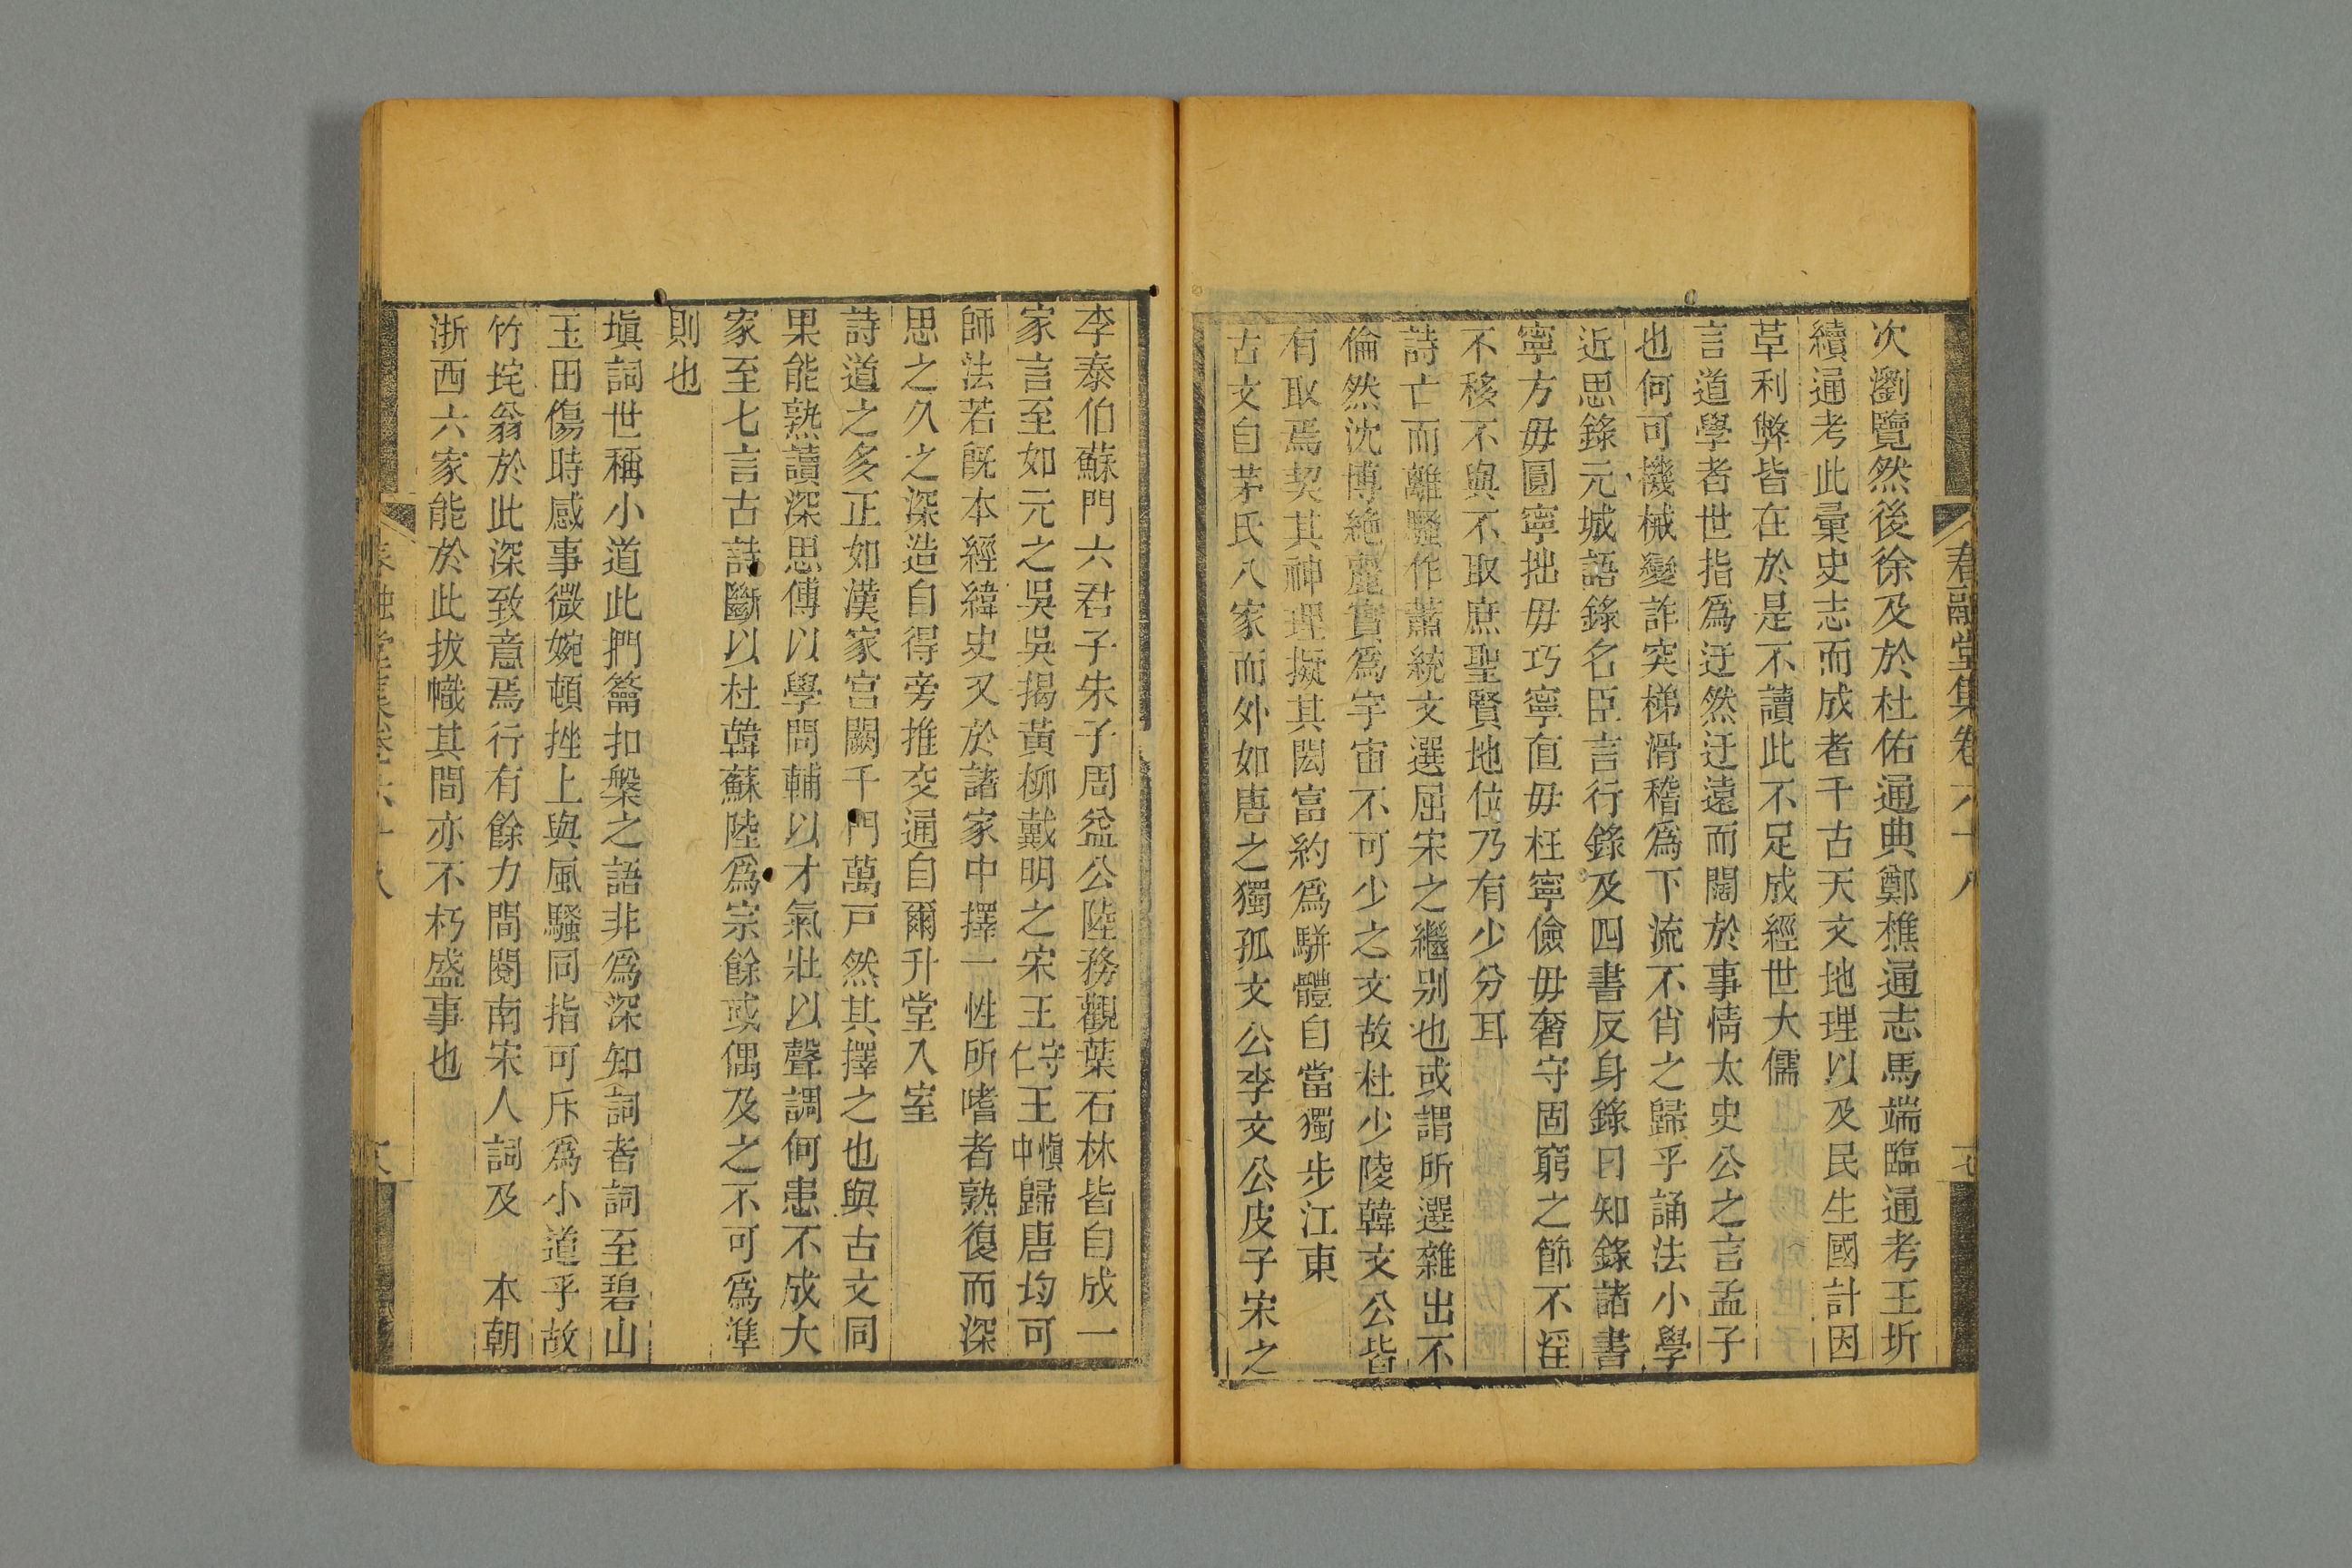 春融堂集卷六十八
七
次瀏覽然後徐及於杜佑通典鄭樵通志馬端臨通考王圻
續通考此彙史志而成者千古天文地理以及民生國計因
革利弊皆在於是不讀此不足成經世大儒
言道學者世指爲迂然迂遠而闊於事情太史公之言孟子
也何可機械變詐突梯滑稽爲下流不肖之歸乎誦法小學
近思錄元城語錄名臣言行錄及四書反身錄日知錄諸書
寧方毋圓寧拙毋巧寧直毋枉寧儉毋奢守固窮之節不淫
不移不與不取庶聖賢地位乃有少分耳
詩亡而離騷作蕭統文選屈宋之繼别也或謂所選雜出不
倫然沈博絶麗實爲宇宙不可少之文故杜少陵韓文公皆
有取焉契其神理擬其閎富約爲駢體自當獨步江東
古文自茅氏八家而外如唐之獨孤文公李文公皮子宋之
李泰伯蘇門六君子朱子周益公陸務觀葉石林皆自成一
家言至如元之吳吳揭黃柳戴明之宋王守仁王愼中歸唐均可
師法若既本經緯史又於諸家中擇一性所嗜者熟復而深
思之久之深造自得旁推交通自爾升堂入室
詩道之多正如漢家宫闕千門萬戸然其擇之也與古文同
果能熟讀深思傅以學問輔以才氣壯以聲調何患不成大
家至七言古詩斷以杜韓蘇陸爲宗餘或偶及之不可爲準
則也
塡詞世稱小道此捫籥扣槃之語非爲深知詞者詞至碧山
玉田傷時感事微婉頓挫上與風騷同指可斥爲小道乎故
竹垞翁於此深致意焉行有餘力間閱南宋人詞及　本朝
浙西六家能於此拔幟其間亦不朽盛事也
春融堂集卷六十八